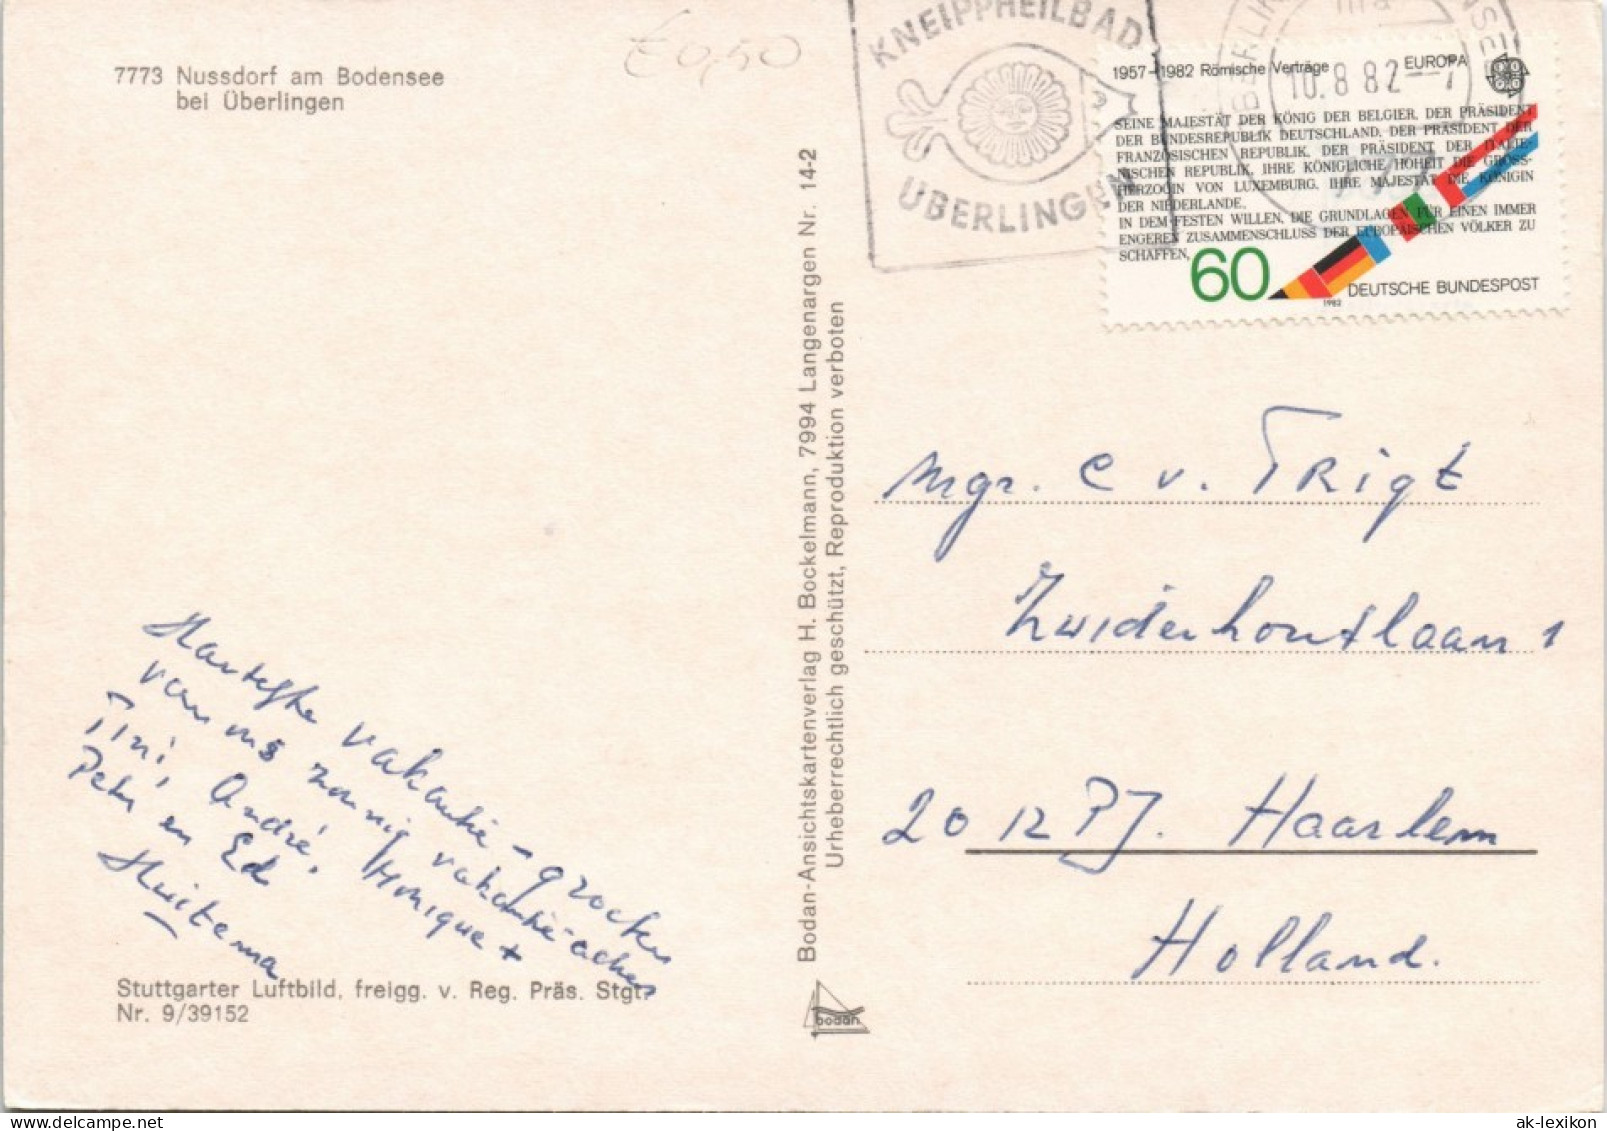 7773 Nussdorf am Bodensee
bei Überlingen
€0,50
KNEIPPHEILBAD
ÜBERLINGEN
10.8.82-7
1957-1982 Römische Verträge EUROPA
SEINE MAJESTÄT DER KÖNIG DER BELGIER, DER PRÄSIDENT
DER BUNDESREPUBLIK DEUTSCHLAND, DER PRÄSIDENT DER
FRANZÖSISCHEN REPUBLIK, DER PRÄSIDENT DER ITALIE-
NISCHEN REPUBLIK, IHRE KÖNIGLICHE HOHEIT DIE GROSS-
HERZOGIN VON LUXEMBURG, IHRE MAJESTÄT DIE KÖNIGIN
DER NIEDERLANDE,
IN DEM FESTEN WILLEN, DIE GRUNDLAGEN FÜR EINEN IMMER
ENGEREN ZUSAMMENSCHLUSS DER EUROPÄISCHEN VÖLKER ZU
SCHAFFEN,
60
1982
DEUTSCHE BUNDESPOST
Bodan-Ansichtskartenverlag H. Bockelmann, 7994 Langenargen Nr. 14-2
Urheberrechtlich geschützt, Reproduktion verboten
Mgr. C v. TRigt
Zuiderhoutlaan 1
2012 PJ. Haarlem
Holland.
Hartelijke vakantie-groeten
van ons zonnig vakantie-adres
Tini, André, Monique +
Peter en Ed
Huitema
Stuttgarter Luftbild, freigg. v. Reg. Präs. Stgt.
Nr. 9/39152
bodan
ak-lexikon